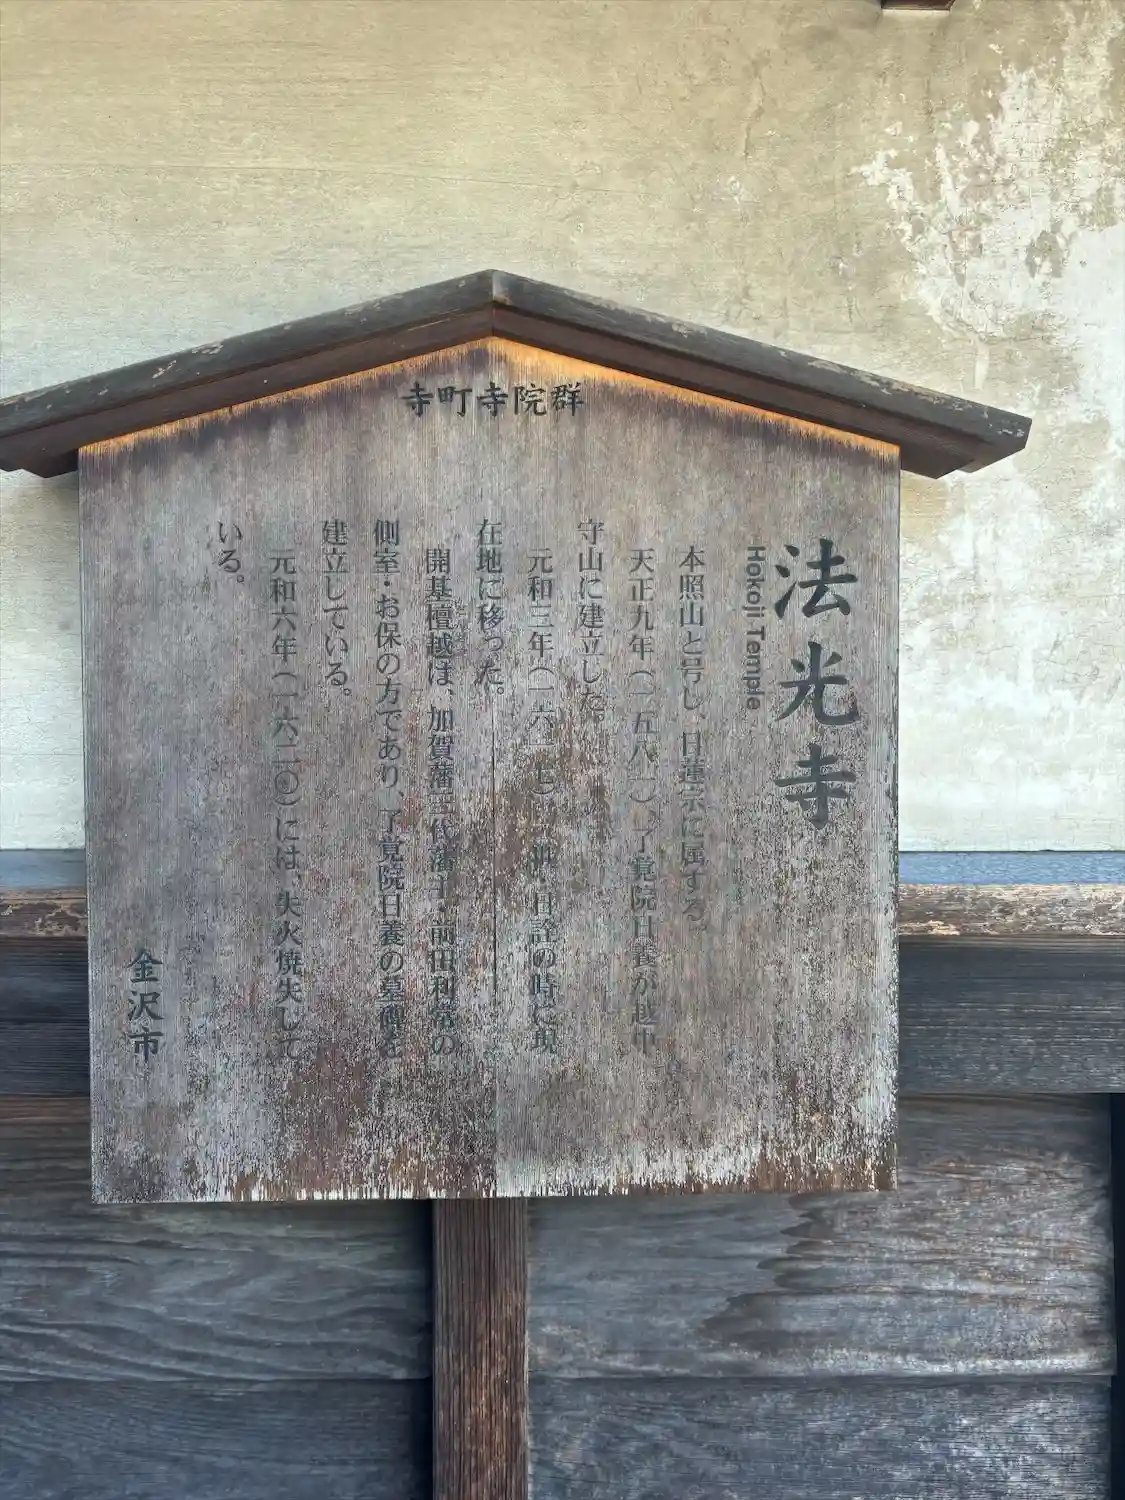 寺町寺院群
法光寺
Hokoji Temple
本照山と号し、日蓮宗に属する。
天正九年(一五八一)、了覚院日養が越中
守山に建立した。
元和三年(一六一七)、日詮の時に現
在地に移った。
開基檀越は、加賀藩三代藩主・前田利常の
側室・お保の方であり、了覚院日養の墓碑を
建立している。
元和六年(一六二〇)には、失火焼失して
いる。
金沢市